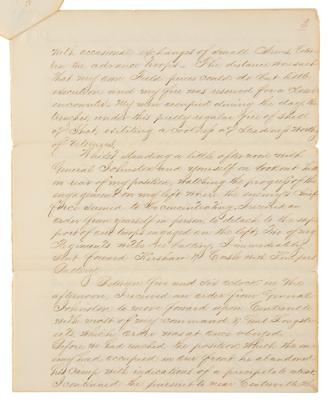 3
with occasional exchanges of small arms between the advance troops. The distance was such
that my own field pieces could do but little
execution and my fire was reserved for a closer
encounter. My men occupied during the day the
trenches, under this pretty regular fire of shell
of shot, exhibiting a coolness & steadiness worthy
of veterans.
Whilst standing a little afternoon with
General Johnston and yourself on lookout hill
in rear of my position, watching the progress of the
engagement on my left where the enemy's chief
force seemed to be concentrating, I received an
order from yourself in person, to detach to the support of our troops engaged on the left, two of my
Regiments with one battery. I immediately
sent forward Kershaw & Cash with Kemper's
Battery.
Between five and six o'clock in the
afternoon, I received an order from General
Johnston to move forward upon Centreville
with most of my command & Genl Longstreet's, which order was at once obeyed.
Before we had reached the position which the enemy had occupied in our front he abandoned
his Camp with indications of a precipitate retreat.
I continued the pursuit to near Centreville